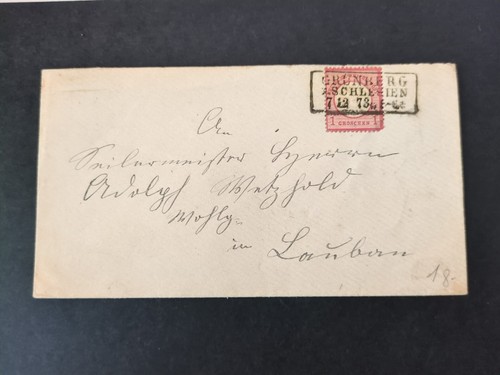 GRÜNBERG
I.SCHLESIEN
7 12 73
1 GROSCHEN 1
An
Seilermeister Herrn
Adolph Wetzhold
Wohlg
in Lauban
18.-